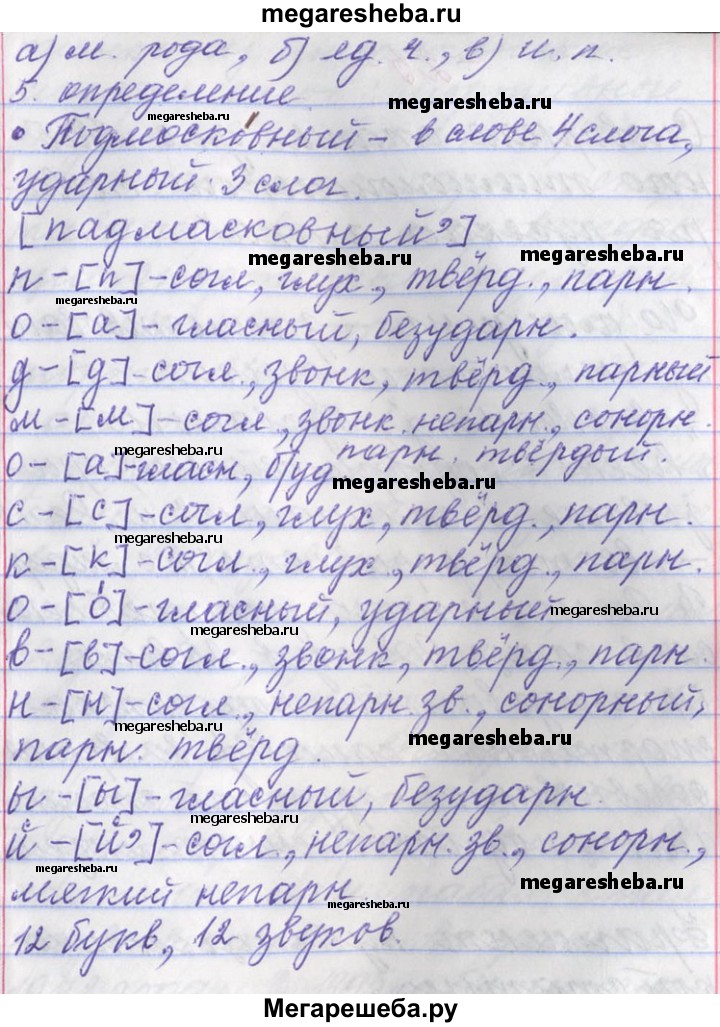 megaresheba.ru
а) м. рода, б) ед. ч., в) и. п.
5. определение
megaresheba.ru
megaresheba.ru
• Подмоско́вный – в слове 4 слога,
ударный 3 слог.
[падмасковный’]
megaresheba.ru
megaresheba.ru
п – [п] – согл, глух., твёрд., парн.
megaresheba.ru
о – [а] – гласный, безударн.
д – [д] – согл., звонк, твёрд., парный
м – [м] – согл, звонк. непарн., сонорн.
парн. твёрдый.
megaresheba.ru
о – [а] – гласн, б/уд
megaresheba.ru
с – [с] – согл, глух, твёрд., парн.
megaresheba.ru
к – [к] – согл., глух., твёрд., парн.
о – [о́] – гласный, ударный
megaresheba.ru
megaresheba.ru
в – [в] – согл., звонк, твёрд., парн.
н – [н] – согл., непарн зв., сонорный,
megaresheba.ru
парн. твёрд.
megaresheba.ru
ы – [ы] – гласный, безударн.
megaresheba.ru
й – [й’] – согл, непарн. зв., сонорн.,
megaresheba.ru
мягкий непарн
megaresheba.ru
megaresheba.ru
12 букв, 12 звуков.
Мегарешеба.ру